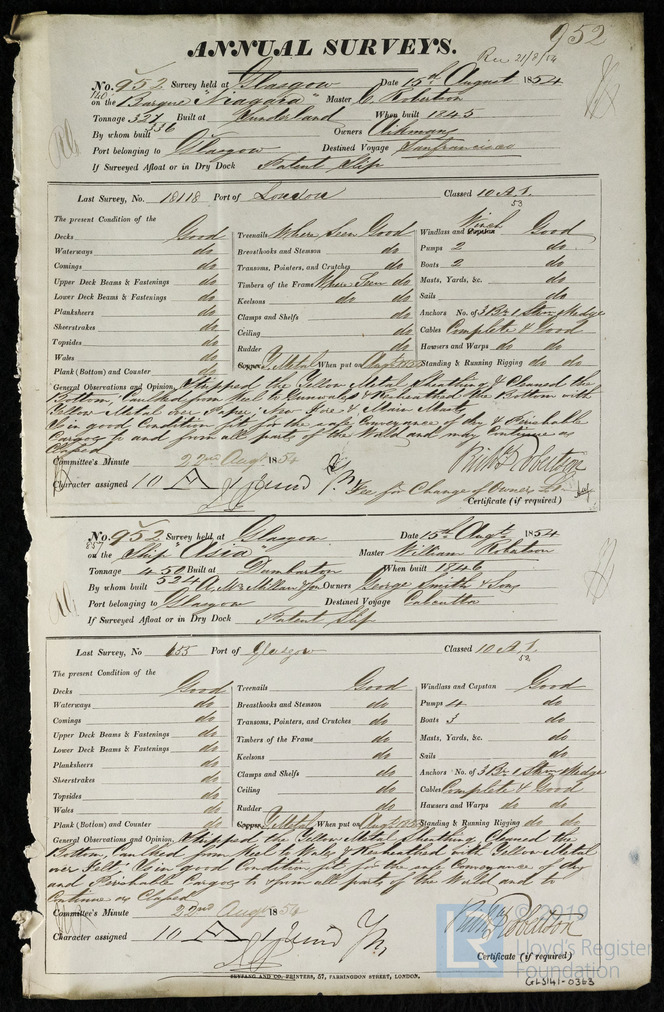 952
ANNUAL SURVEYS.
Rec 21/8/54
No. 952 Survey held at Glasgow Date 15th August 1854
on the Barque "Niagara" Master C. Robertson
Tonnage 327 Built at Sunderland When built 1845
By whom built 336 Owners Aikman
Port belonging to Glasgow Destined Voyage Sanfrancisco
If Surveyed Afloat or in Dry Dock Patent Slip
Last Survey, No. 18118 Port of London Classed 10 A.1.
53
The present Condition of the
Decks Good
Waterways do
Comings do
Upper Deck Beams & Fastenings do
Lower Deck Beams & Fastenings do
Planksheers do
Sheerstrakes do
Topsides do
Wales do
Plank (Bottom) and Counter do
Treenails Where Seen Good
Breasthooks and Stemson do
Transoms, Pointers, and Crutches do
Timbers of the Frame Where Seen do
Keelsons do do
Clamps and Shelfs do
Ceiling do
Rudder do
Copper Y. Metal When put on Augt 1854
Windlass and Capstan Winch Good
Pumps 2 do
Boats 2 do
Masts, Yards, &c. do
Sails do
Anchors No. of 3 Br 1 Strm Kedge
Cables Complete & Good
Hawsers and Warps do do
Standing & Running Rigging do do
General Observations and Opinion, Stripped the Yellow Metal Sheathing & Cleaned the
Bottom, Caulked from Keel to Gunwales & Resheathed the Bottom with
Yellow Metal over Paper, New Fore & Main Masts,
Is in good Condition fit for the safe Conveyance of dry & Perishable
Cargoes to and from all parts of the World and may Continue as
Classed
Committee's Minute 22nd Augt 1854
Character assigned 10 A
Fee for Change of Owner
Robertson
Certificate (if required)
No. 952 Survey held at Glasgow Date 15th Augt 1854
on the Ship "Asia" Master William Robertson
Tonnage 450 Built at Dumbarton When built 1846
524
By whom built A. McMillan & Son Owners George Smith & Sons
Port belonging to Glasgow Destined Voyage Calcutta
If Surveyed Afloat or in Dry Dock Patent Slip
Last Survey, No 655 Port of Glasgow Classed 10 A.1.
52
The present Condition of the
Decks Good
Waterways do
Comings do
Upper Deck Beams & Fastenings do
Lower Deck Beams & Fastenings do
Planksheers do
Sheerstrakes do
Topsides do
Wales do
Plank (Bottom) and Counter do
Treenails Good
Breasthooks and Stemson do
Transoms, Pointers, and Crutches do
Timbers of the Frame do
Keelsons do
Clamps and Shelfs do
Ceiling do
Rudder do
Copper Y. Metal When put on Augt 1854
Windlass and Capstan Good
Pumps 4 do
Boats 3 do
Masts, Yards, &c. do
Sails do
Anchors No. of 3 Br 1 Strm Kedge
Cables Complete & Good
Hawsers and Warps do do
Standing & Running Rigging do do
General Observations and Opinion, Stripped the Yellow Metal Sheathing, Cleaned the
Bottom, Caulked from Keel to Wales & Resheathed with Yellow Metal
over Felt. Is in good Condition fit for the safe Conveyance of dry
and Perishable Cargoes to & from all parts of the World and to
Continue as Classed
Committee's Minute 22nd Augt 1854
Character assigned 10 A
Robertson
Certificate (if required)
SEYFANG AND CO. PRINTERS, 57, FARRINGDON STREET, LONDON.
© 2019
Lloyd's Register
Foundation
GLS141-0363